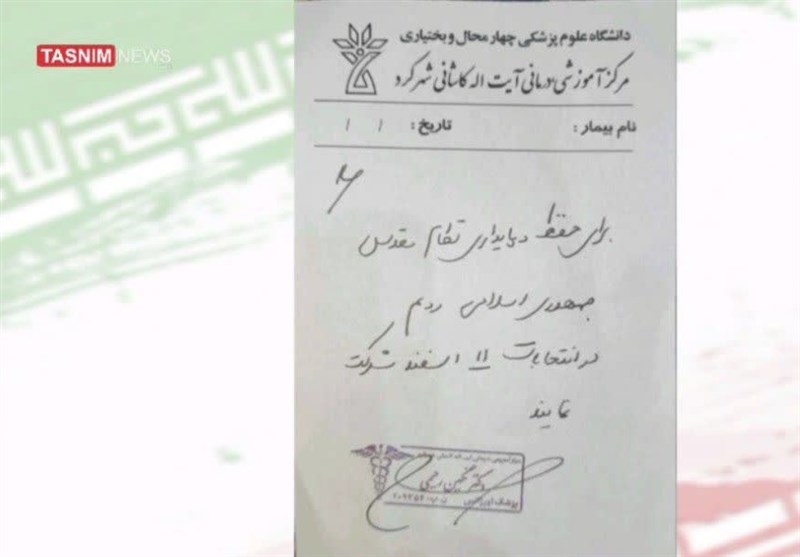 TASNIM NEWS
دانشگاه علوم پزشکی چهارمحال و بختیاری
مرکز آموزشی درمانی آیت اله کاشانی شهرکرد
نام بیمار : تاریخ : / /
برای حفظ و پایداری نظام مقدس
جمهوری اسلامی مردم
در انتخابات ۱۱ اسفند شرکت
نمایند
دکتر نگین